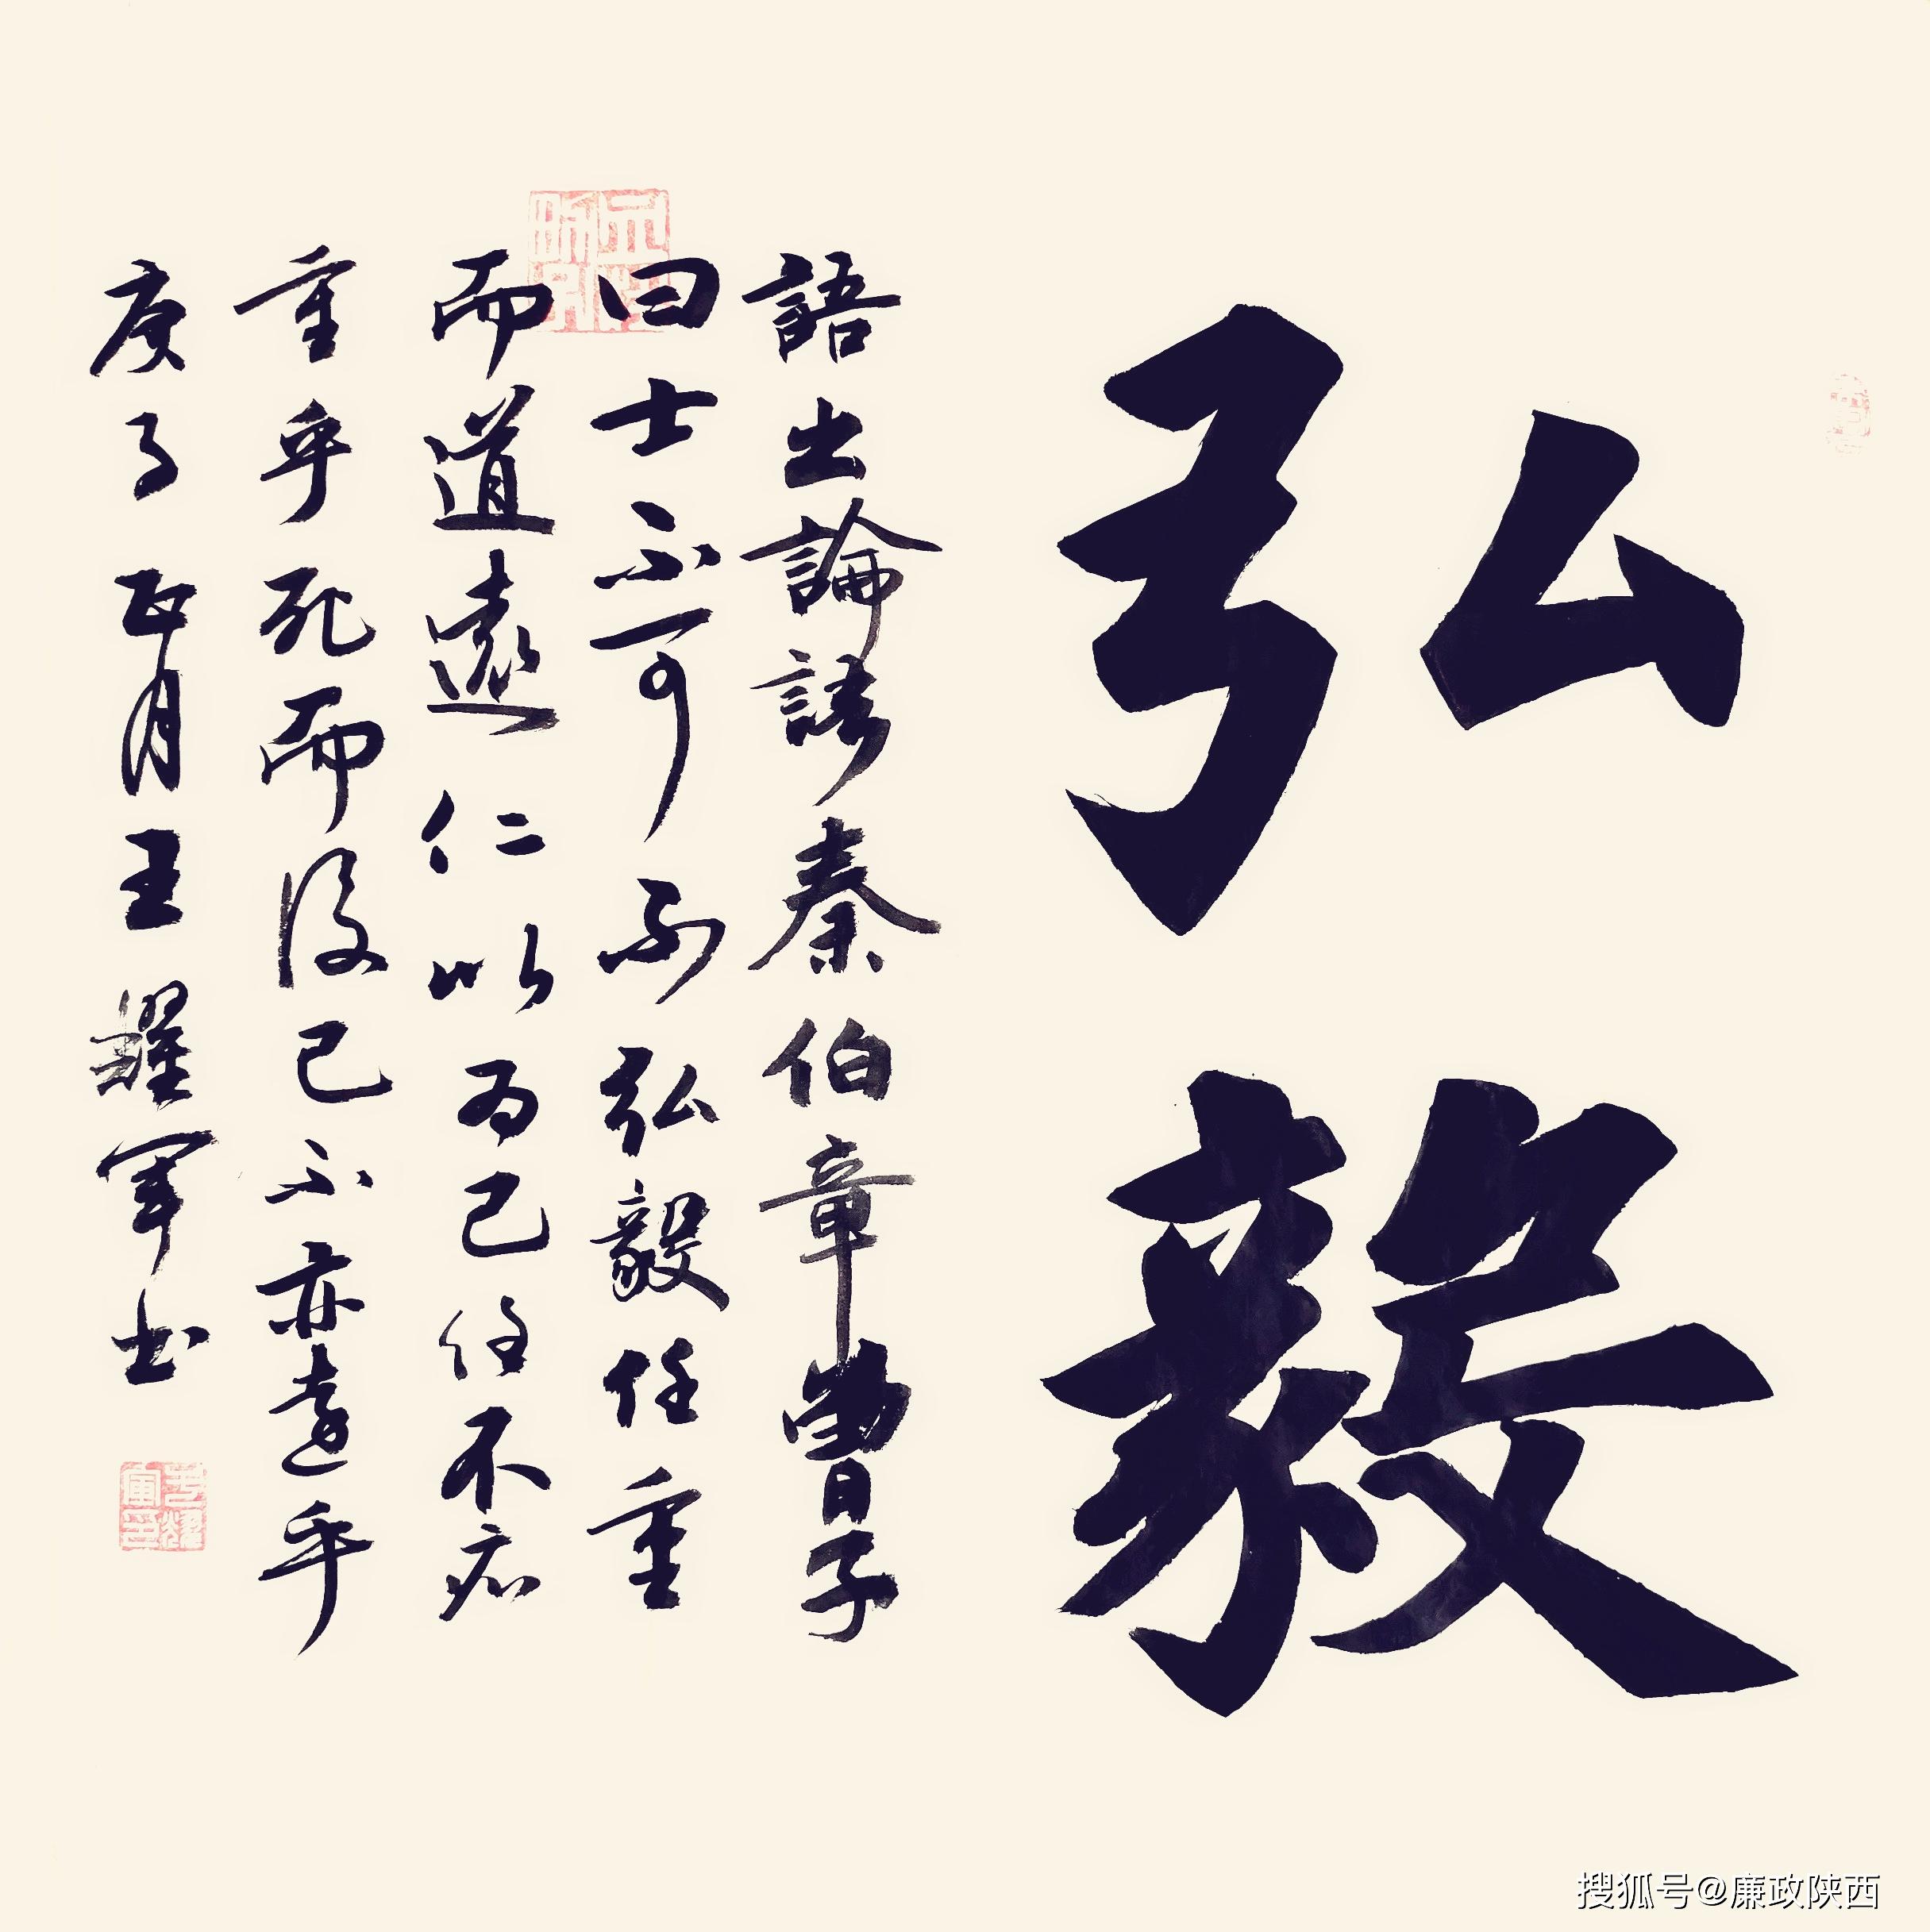 弘毅
語出論語秦伯章曾子
曰士不可不弘毅任重
而道遠仁以為己任不亦
重乎死而後已不亦遠乎
庚子五月王耀軍书
搜狐号@廉政陕西